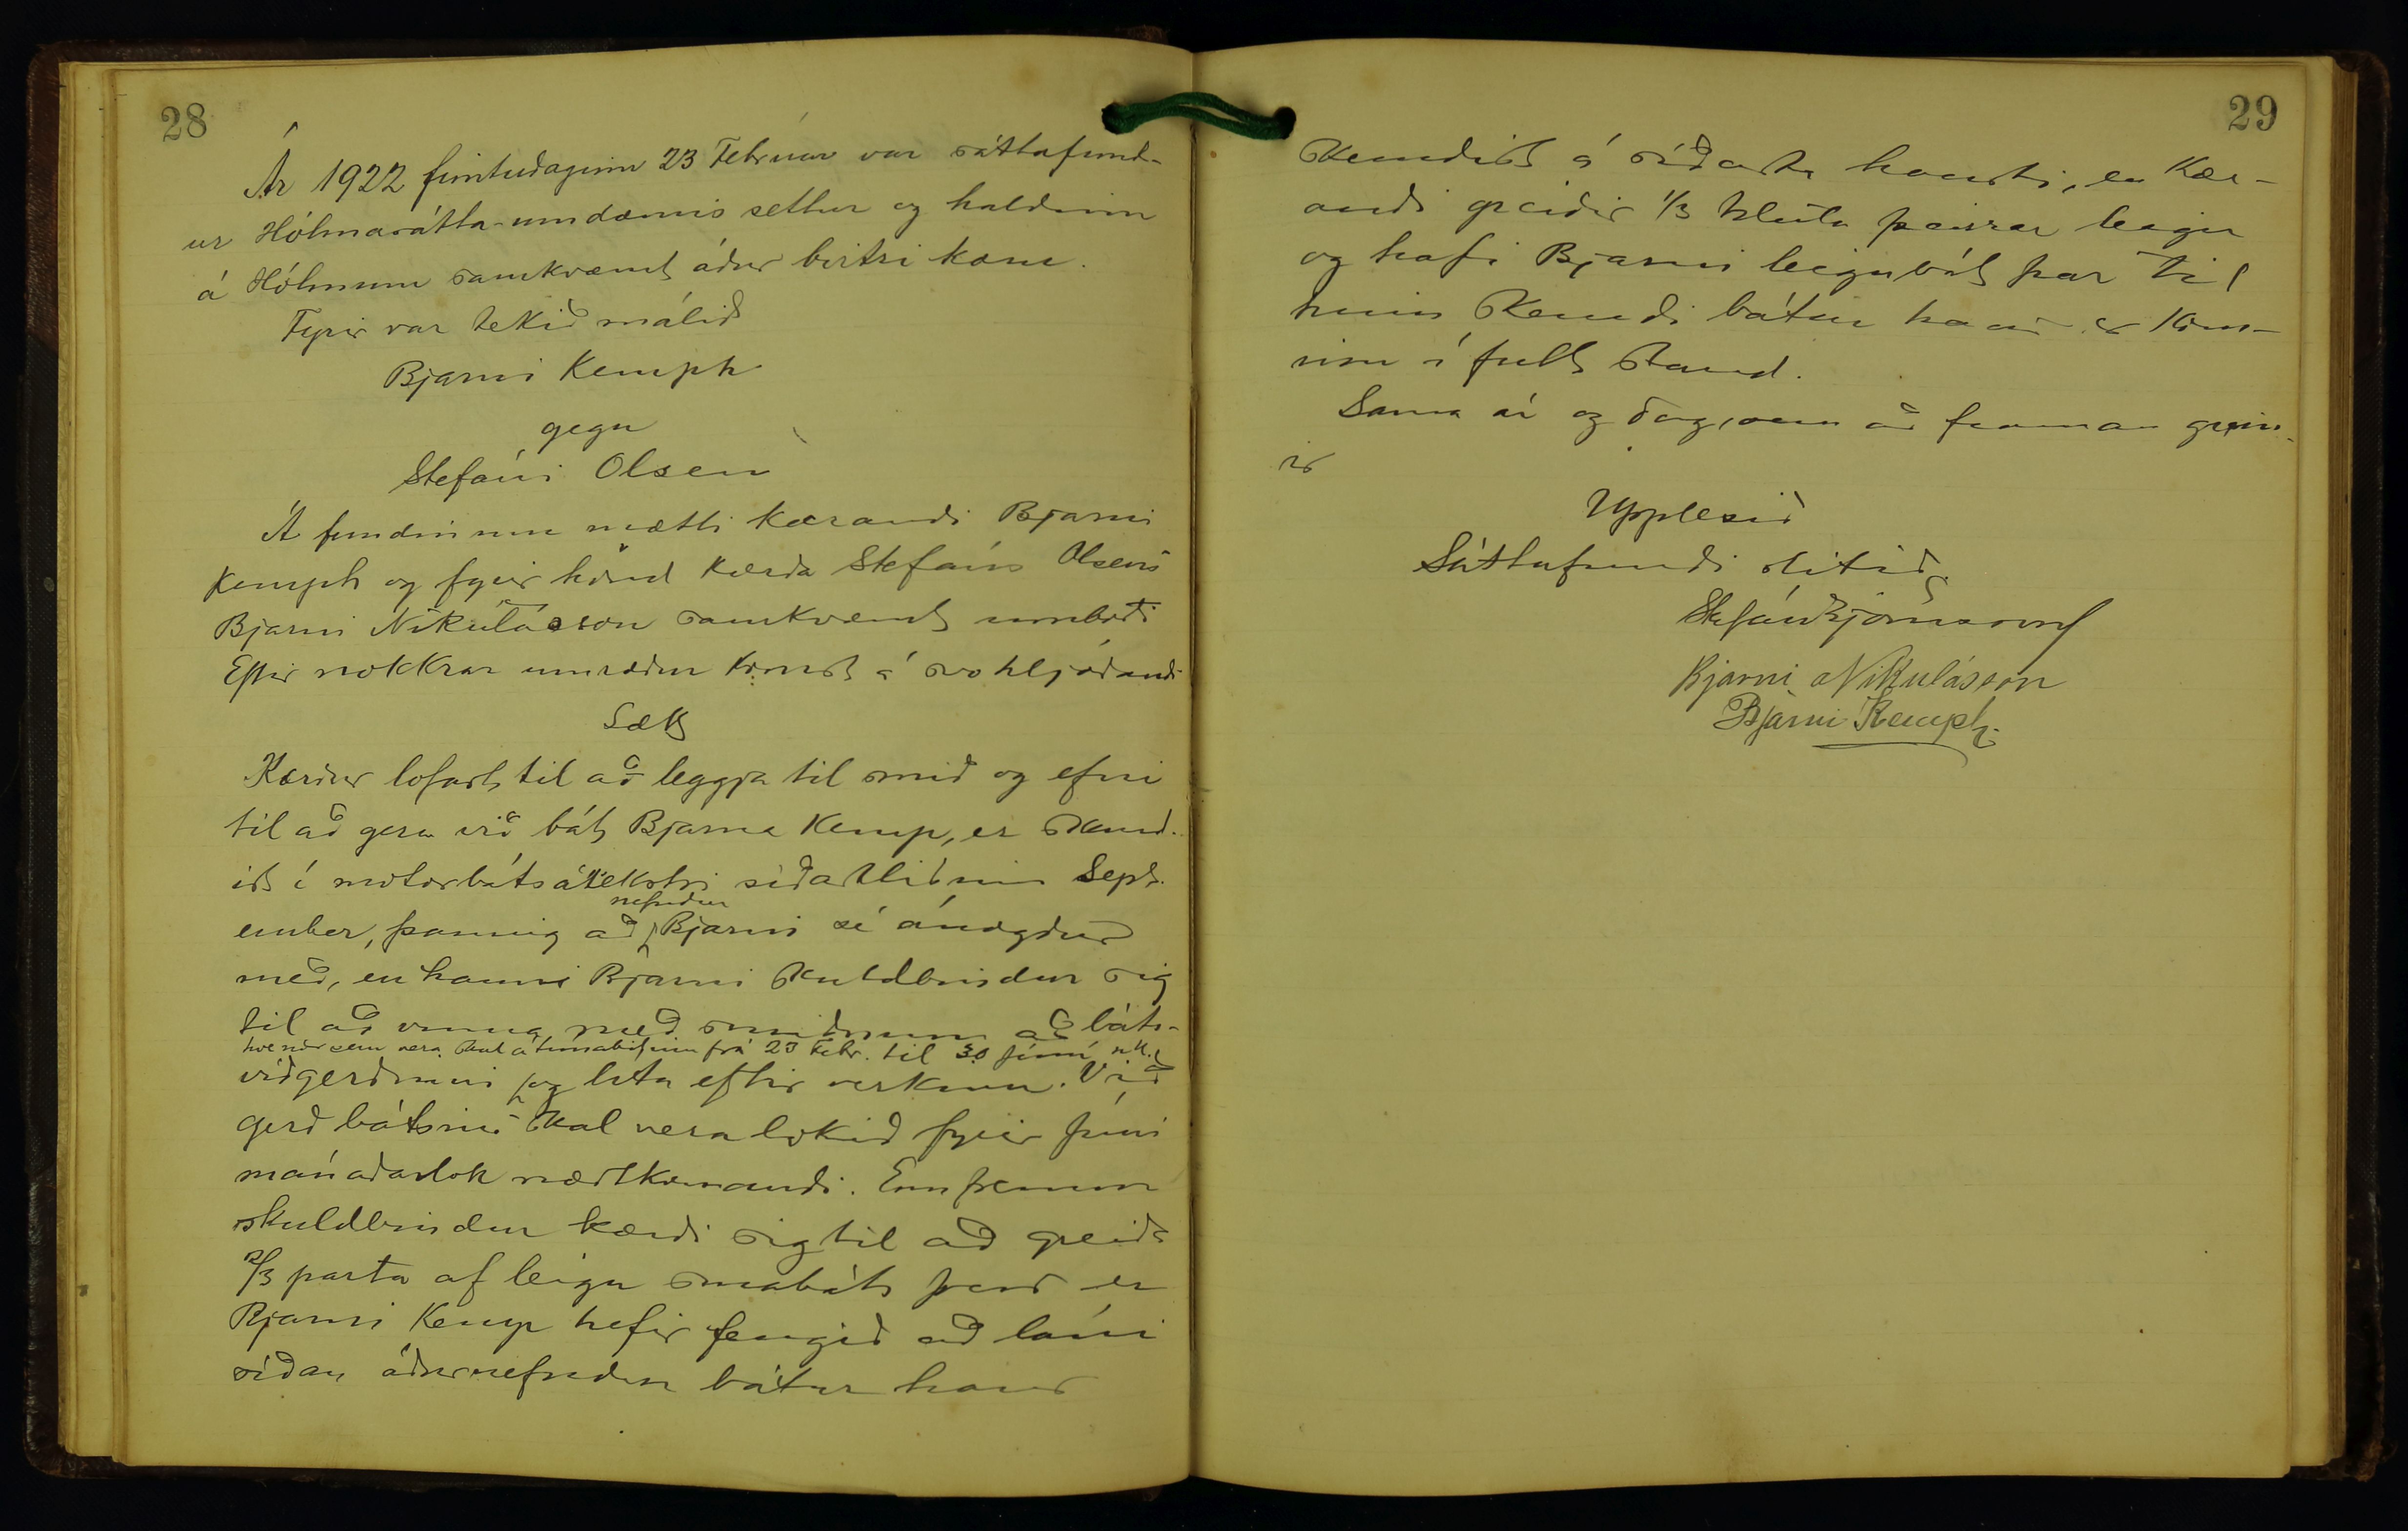 28
Ár 1922 fimtudaginn 23 Februar var sáttafund-
ur Hólmasátta-umdæmis settur og haldinn
á Hólmum samkvæmt áður birtri kæru.
Fyrir var tekið málið
Bjarni Kemph
gegn
Stefáni Olsen
Á fundinum mætti kærandi Bjarni
Kemph og fyrir hönd kærða Stefáns Olsens
Bjarni Nikulásson samkvæmt umboði
Eftir nokkrar umræður komst á svo hljóðandi
Sætt
Kærður lofast til að leggja til smið og efni
til að gera við bát Bjarna Kemp, er skemd-
ist í motorbátsátekstri síðastliðnum Sept-
ember, þannig að nefndur Bjarni sé ánægdur
með, en hanns Bjarni skuldbindur sig
til að vinna með smiðnum að báts-
hvenær sem vera skal á tímabilinu frá 23 Febr. til 30 júní n.k.
viðgerðinni og líta eftir verkinu. Við
gerð bátsins skal vera lokið fyrir júní
mánaðarlok næstkomandi. Ennfremur
skuldbindur kærði sig til að greiða
2/3 parta af leigu smábáts þess er
Bjarni Kemp hefir fengið að láni
síðan áðurnefndur bátur hans
29
skemdist á síðasta hausti, en kær-
andi greiðir 1/3 hluta þeirrar leigu
og hafi Bjarni leigubát þar til
hinn skemdi bátur hans er kom-
inn í fullt stand.
Sama ár og dag, sem að framan grein-
ir
Upplesið
Sáttafundi slitið
Stefán Björnsson
Bjarni Nikulásson
Bjarni Kemph.